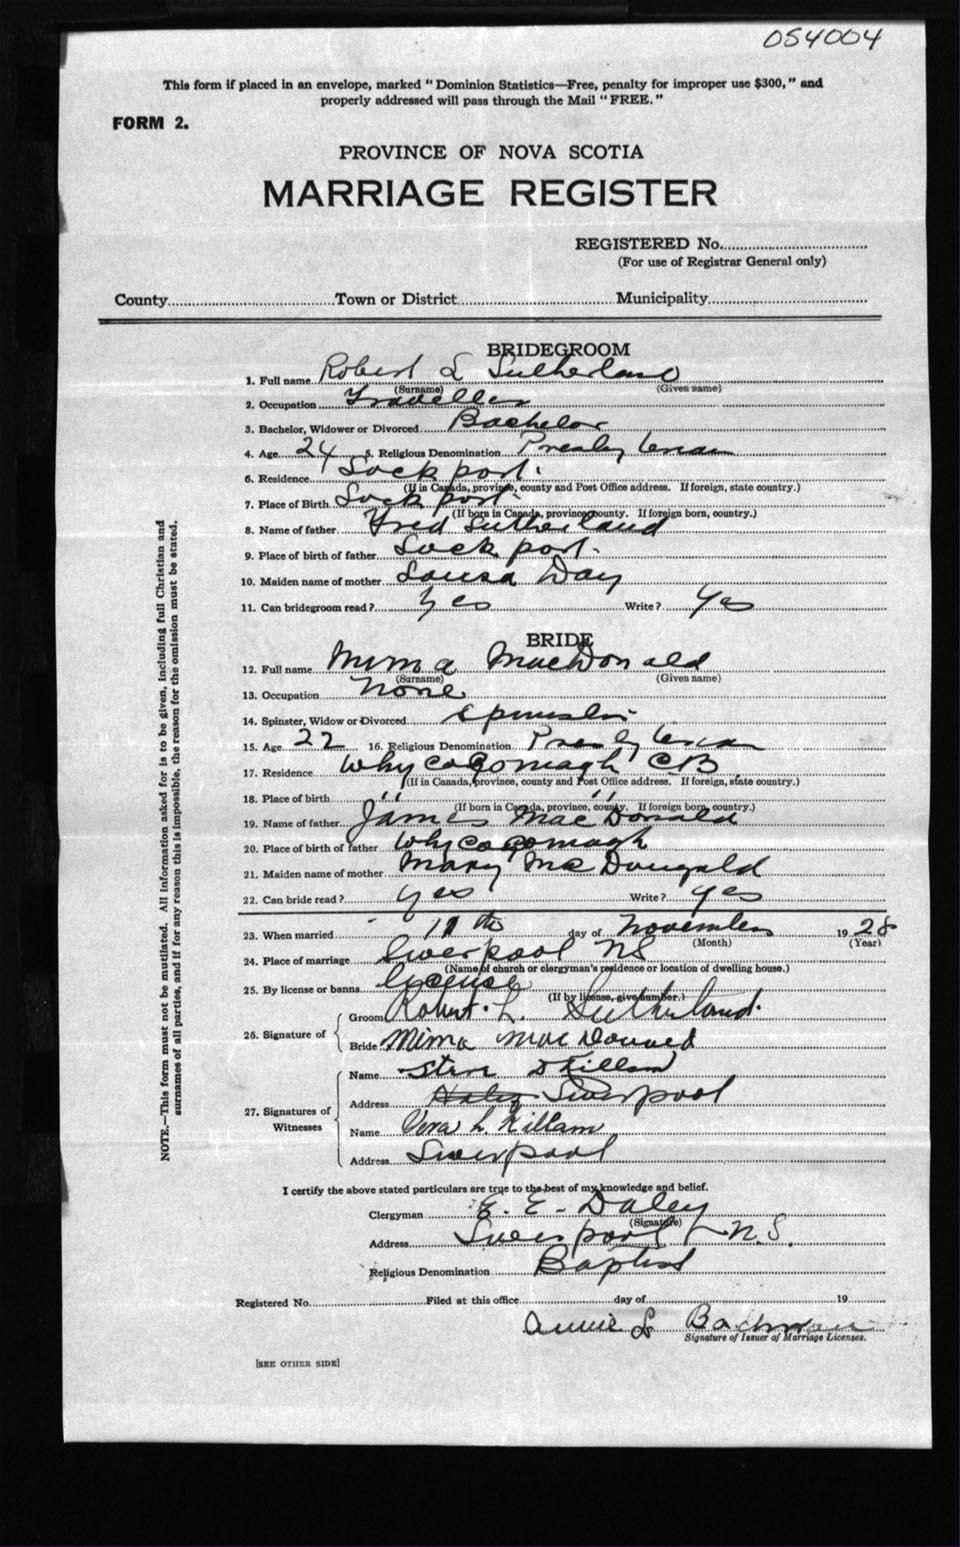 054004
This form if placed in an envelope, marked "Dominion Statistics—Free, penalty for improper use $300," and
properly addressed will pass through the Mail "FREE."
FORM 2.
PROVINCE OF NOVA SCOTIA
MARRIAGE REGISTER
REGISTERED No.
(For use of Registrar General only)
County Town or District Municipality
BRIDEGROOM
1. Full name Robert L Sutherland
(Surname) (Given name)
2. Occupation Traveller
3. Bachelor, Widower or Divorced Bachelor
4. Age 24 5. Religious Denomination Presbyterian
6. Residence Lockport.
(If in Canada, province, county and Post Office address. If foreign, state country.)
7. Place of Birth Lockport.
(If born in Canada, province, county. If foreign born, country.)
8. Name of father Fred Sutherland
9. Place of birth of father Lockport.
10. Maiden name of mother Louisa Day
11. Can bridegroom read? Yes Write? Yes
BRIDE
12. Full name Mima MacDonald
(Surname) (Given name)
13. Occupation None
14. Spinster, Widow or Divorced Spinster
15. Age 22 16. Religious Denomination Presbyterian
17. Residence Whycocomagh C.B.
(If in Canada, province, county and Post Office address. If foreign, state country.)
18. Place of birth " "
(If born in Canada, province, county. If foreign born, country.)
19. Name of father James MacDonald
20. Place of birth of father Whycocomagh
21. Maiden name of mother Mary McDougald
22. Can bride read? Yes Write? Yes
23. When married day of November 1928
(Month) (Year)
24. Place of marriage Liverpool NS
(Name of church or clergyman's residence or location of dwelling house.)
25. By license or banns License
(If by license, give number.)
26. Signature of
Groom Robert. L. Sutherland.
Bride Mima MacDonald
27. Signatures of
Witnesses
Name Killam
Address Liverpool
Name Vera L. Killam
Address Liverpool
I certify the above stated particulars are true to the best of my knowledge and belief.
Clergyman E. E. Daley
(Signature)
Address Liverpool N.S.
Religious Denomination Baptist
Registered No. Filed at this office day of 19
Annie L Bachman
Signature of Issuer of Marriage Licenses.
[SEE OTHER SIDE]
NOTE.—This form must not be mutilated. All information asked for is to be given, including full Christian and
surnames of all parties, and if for any reason this is impossible, the reason for the omission must be stated.